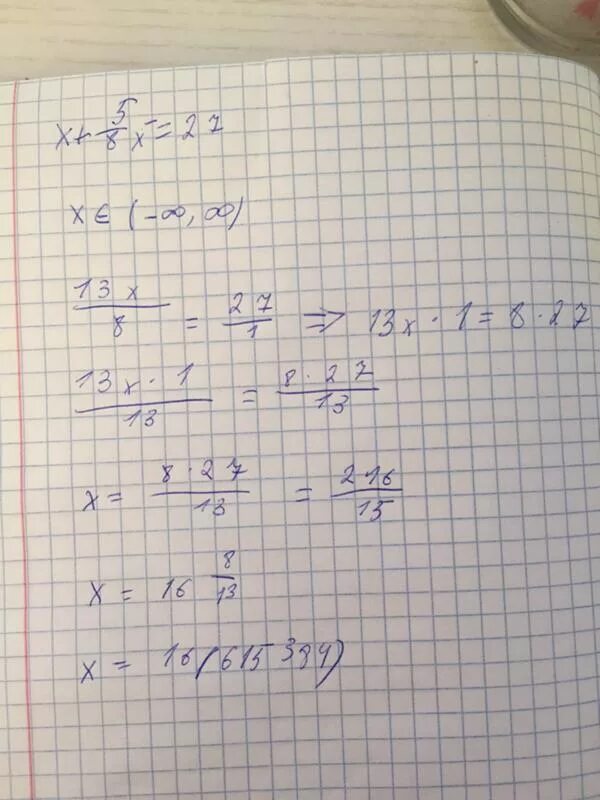 x+5/8 x=27
x∈(-∞, ∞)
13x/8 = 27/1 ⇒ 13x·1=8·27
13x·1/13 = 8·27/13
x = 8·27/13 = 216/15
x = 16 8/13
x = 16(615384)